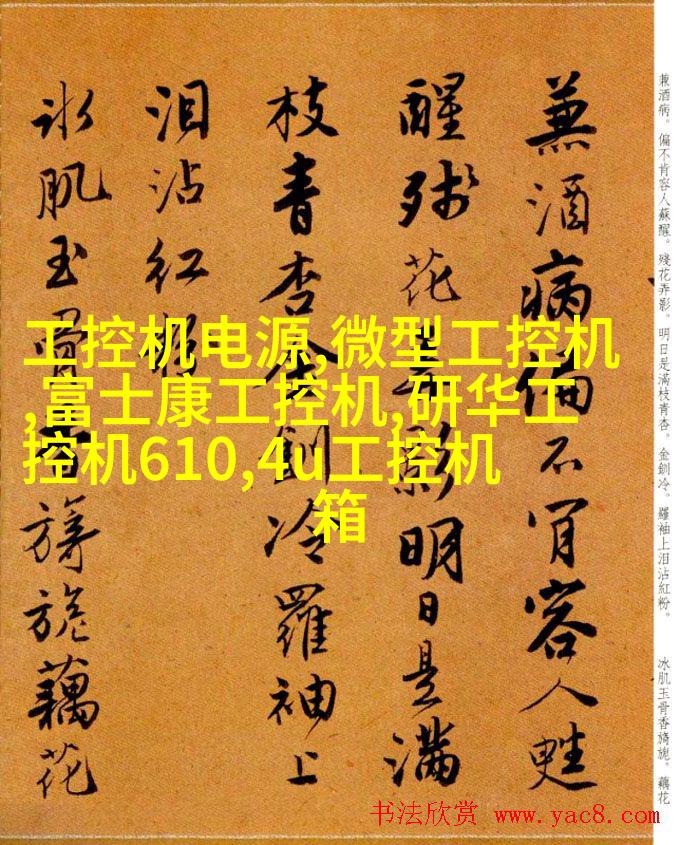 兼酒病偏不肯容人甦
醒殘花弄影明日是滿
枝青杏金釧冷羅袖上
泪沾红粉
冰肌玉骨香旖旎藕花
兼酒病。偏不肯容人蘇醒。殘花弄影。明日是滿枝青杏。金釧冷。羅袖上泪沾紅粉。
冰肌玉骨香旖旎。藕花
工控机电源,微型工控机
,富士康工控机,研华工
控机610,4u工控机
箱
书法欣赏 www.yac8.com